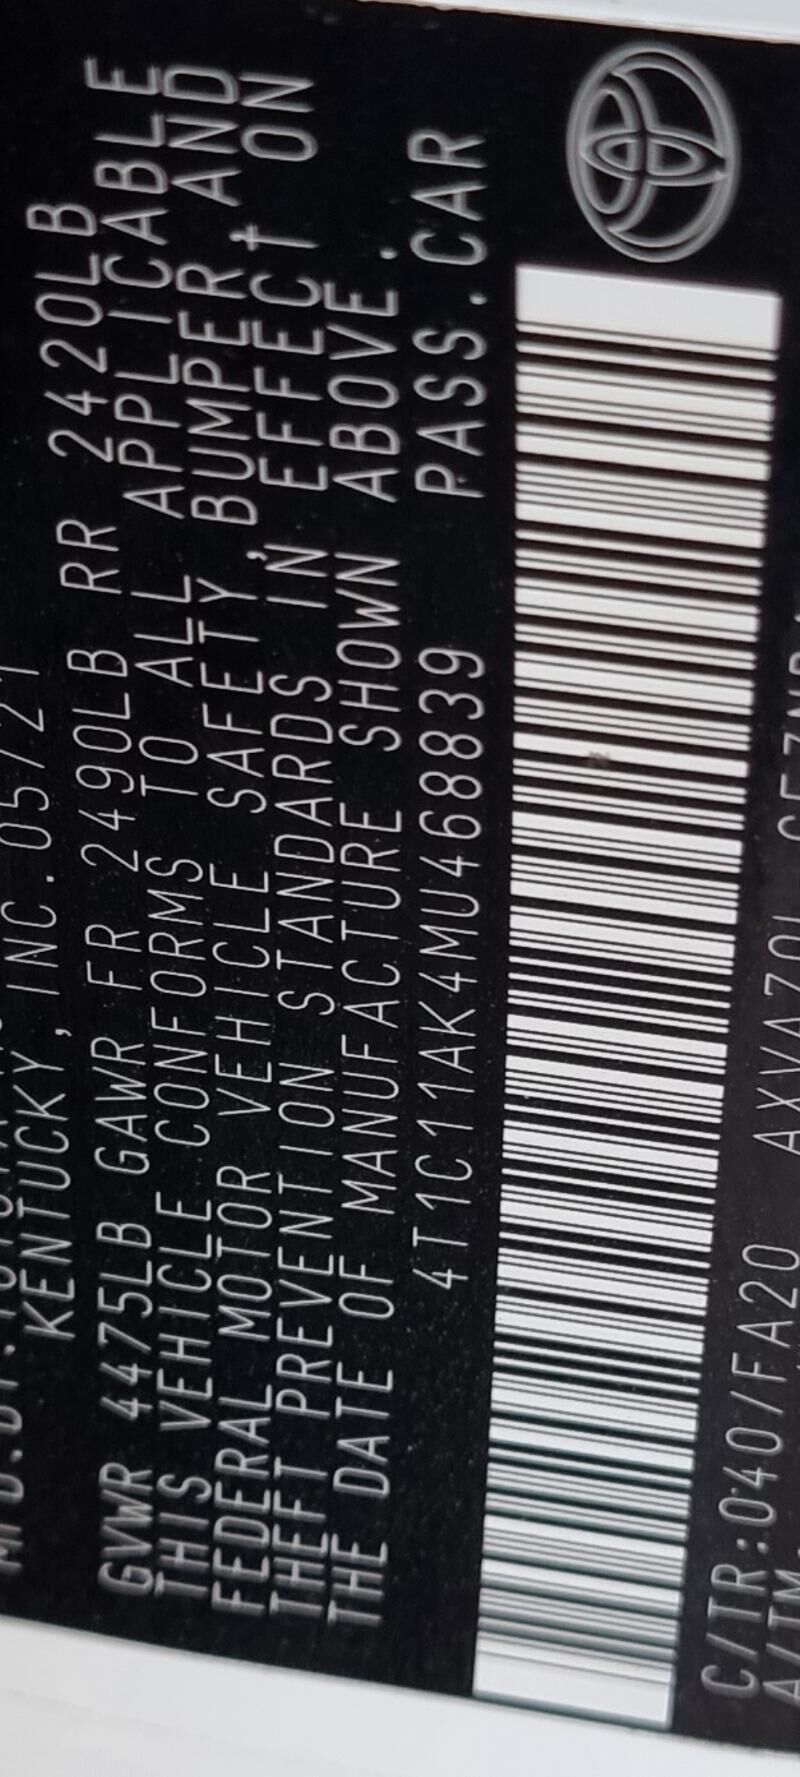 KENTUCKY, INC. 05/21
GVWR 4475LB GAWR FR 2490LB RR 2420LB
THIS VEHICLE CONFORMS TO ALL APPLICABLE
FEDERAL MOTOR VEHICLE SAFETY, BUMPER, AND
THEFT PREVENTION STANDARDS IN EFFECT ON
THE DATE OF MANUFACTURE SHOWN ABOVE.
4T1C11AK4MU468839 PASS.CAR
C/TR:040/FA20 AXVA70L
A/TM: